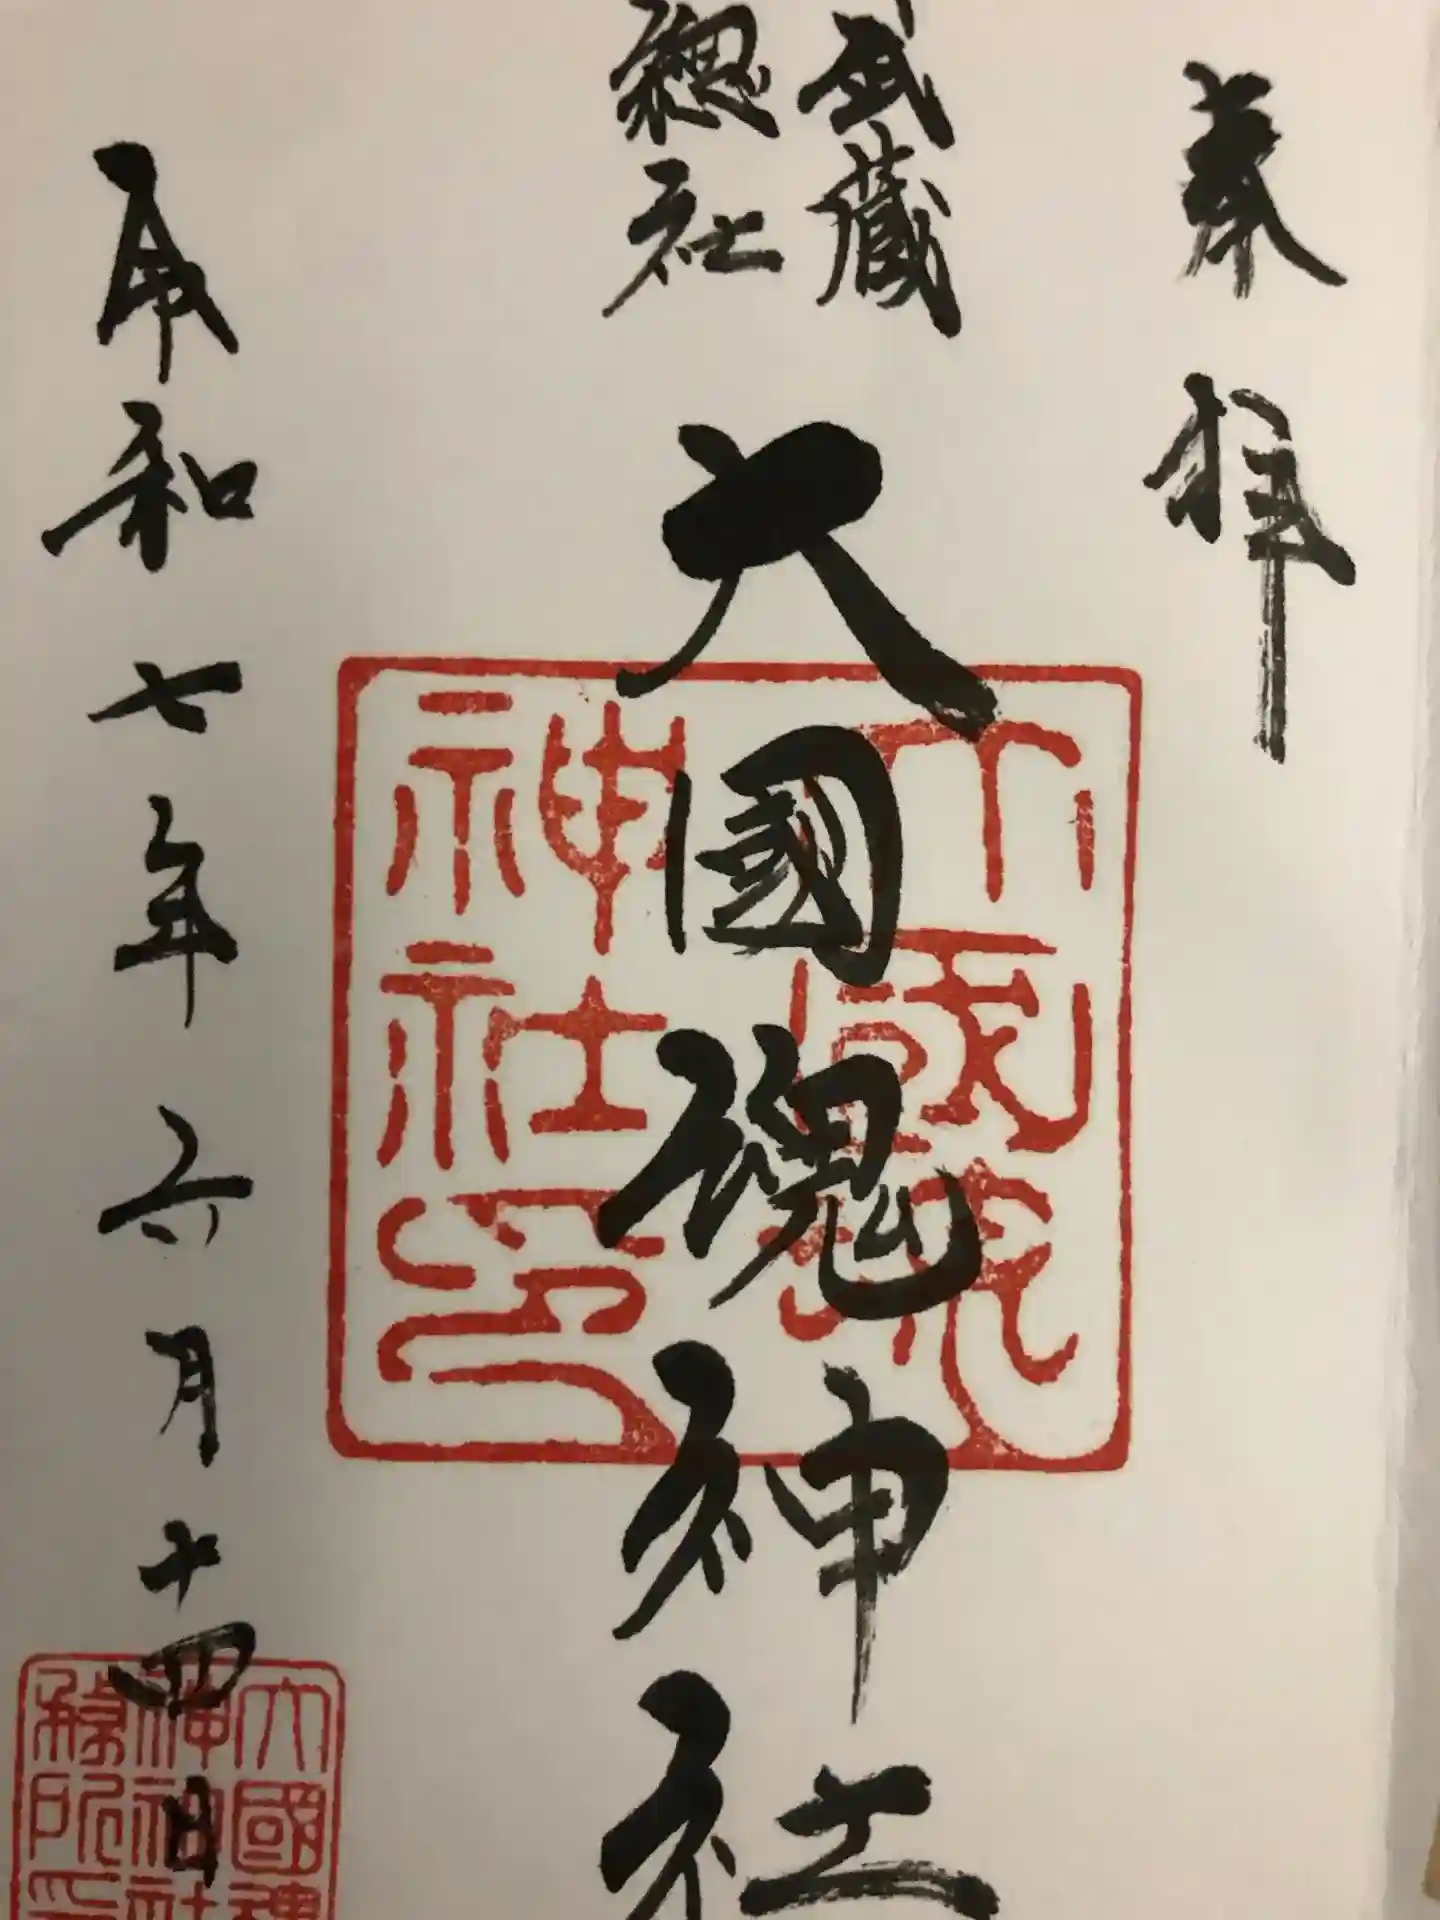 奉拝
武蔵
総社
大國魂神社
大國魂
神社印
令和七年六月十四日
大國魂
神社